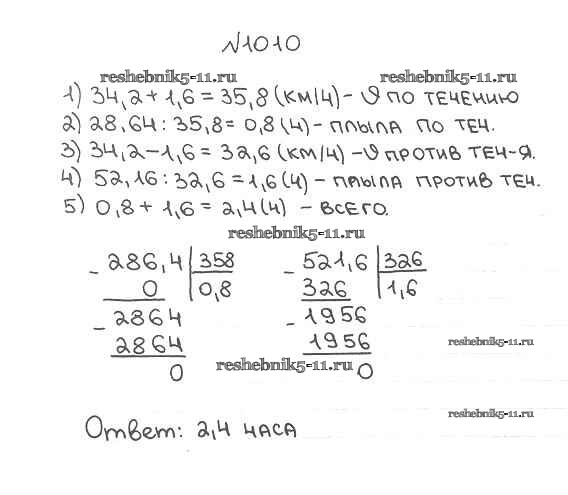 №1010
reshebnik5-11.ru reshebnik5-11.ru
1) 34,2 + 1,6 = 35,8 (км/ч) - υ по течению
2) 28,64 : 35,8 = 0,8 (ч) - плыла по теч.
3) 34,2 - 1,6 = 32,6 (км/ч) - υ против теч-я.
4) 52,16 : 32,6 = 1,6 (ч) - плыла против теч.
5) 0,8 + 1,6 = 2,4 (ч) - всего.
reshebnik5-11.ru
- 286,4 | 358 - 521,6 | 326
0 | 0,8 326 | 1,6
- 2864 - 1956
2864 1956
0 reshebnik5-11.ru 0
reshebnik5-11.ru
reshebnik5-11.ru
Ответ: 2,4 часа